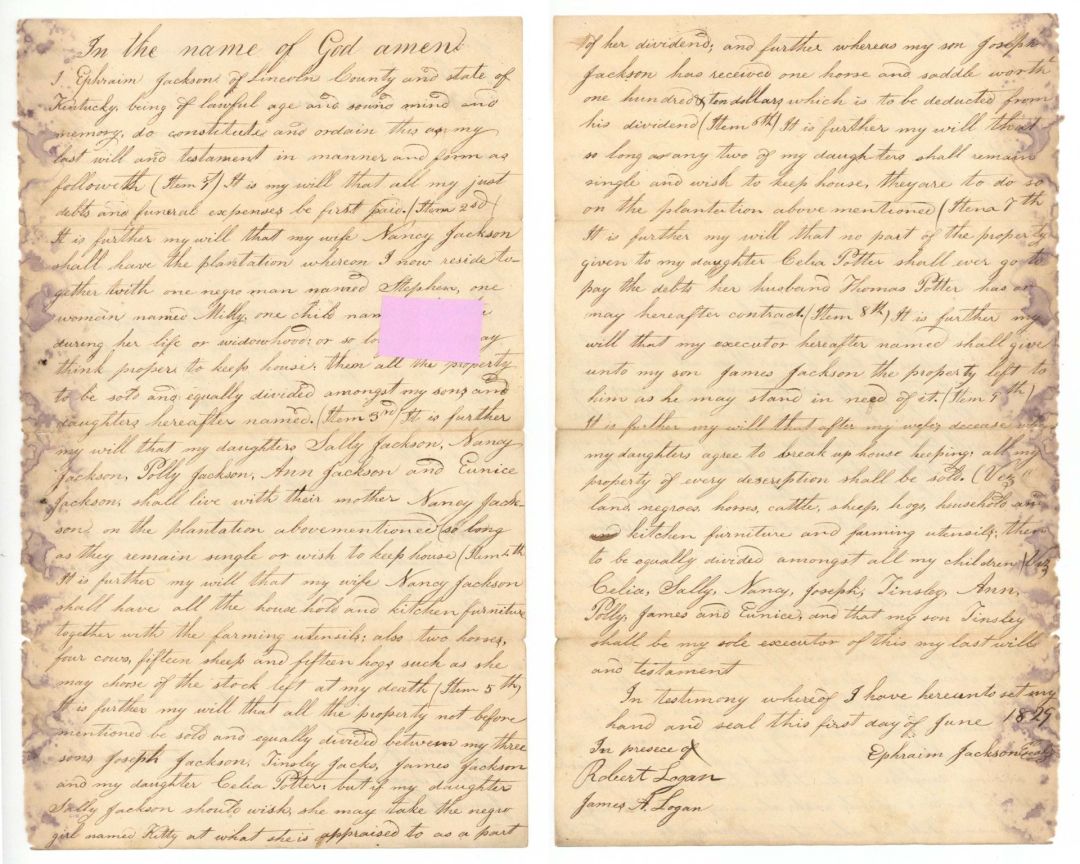 In the name of God amen.
I Ephraim Jackson, of Lincoln County and state of
Kentucky, being of lawful age and sound mind and
memory, do constitute and ordain this as my
last will and testament in manner and form as
followeth (Item 1st) It is my will that all my just
debts and funeral expenses be first paid. (Item 2nd)
It is further my will that my wife Nancy Jackson
shall have the plantation whereon I now reside to-
gether with one negro man named Stephen, one
woman named Milly, one child
during her life or widowhood; or so
think proper to keep house; then all the property
to be sold and equally divided amongst my sons and
daughters hereafter named. (Item 3rd) It is further
my will that my daughters Sally Jackson, Nancy
Jackson, Polly Jackson, Ann Jackson and Eunice
Jackson, shall live with their mother Nancy Jack-
son, on the plantation abovementioned (so long
as they remain single or wish to keep house (Item 4th
It is further my will that my wife Nancy Jackson
shall have all the house hold and kitchen furniture
together with the farming utensils; also two horses,
four cows, fifteen sheep and fifteen hogs such as she
may choose of the stock left at my death (Item 5th)
It is further my will that all the property not before
mentioned be sold and equally divided between my three
sons Joseph Jackson, Tinsley Jacks, James Jackson
and my daughter Celia Potter; but if my daughter
Sally Jackson should wish, she may take the negro
girl named Kitty at what she is appraised to as a part
of her dividend; and further whereas my son Joseph
Jackson has received one horse and saddle worth
one hundred & ten dollars which is to be deducted from
his dividend (Item 6th) It is further my will that
so long as any two of my daughters shall remain
single and wish to keep house, they are to do so
on the plantation above mentioned (Item 7th
It is further my will that no part of the property
given to my daughter Celia Potter shall ever go to
pay the debts her husband Thomas Potter has or
may hereafter contract. (Item 8th) It is further my
will that my executor hereafter named shall give
unto my son James Jackson the property left to
him as he may stand in need of it. (Item 9th)
It is further my will that after my wifes decease
my daughters agree to break up house keeping; all my
property of every description shall be sold. (Viz
land, negroes, horses, cattle, sheep, hogs, household and
kitchen furniture and farming utensils; then
to be equally divided amongst all my children (Viz
Celia, Sally, Nancy, Joseph, Tinsley, Ann,
Polly, James and Eunice, and that my son Tinsley
shall be my sole executor of this my last will
and testament
In testimony whereof I have hereunto set my
hand and seal this first day of June 1829
In presece of Ephraim Jackson Seal
Robert Logan
James A. Logan